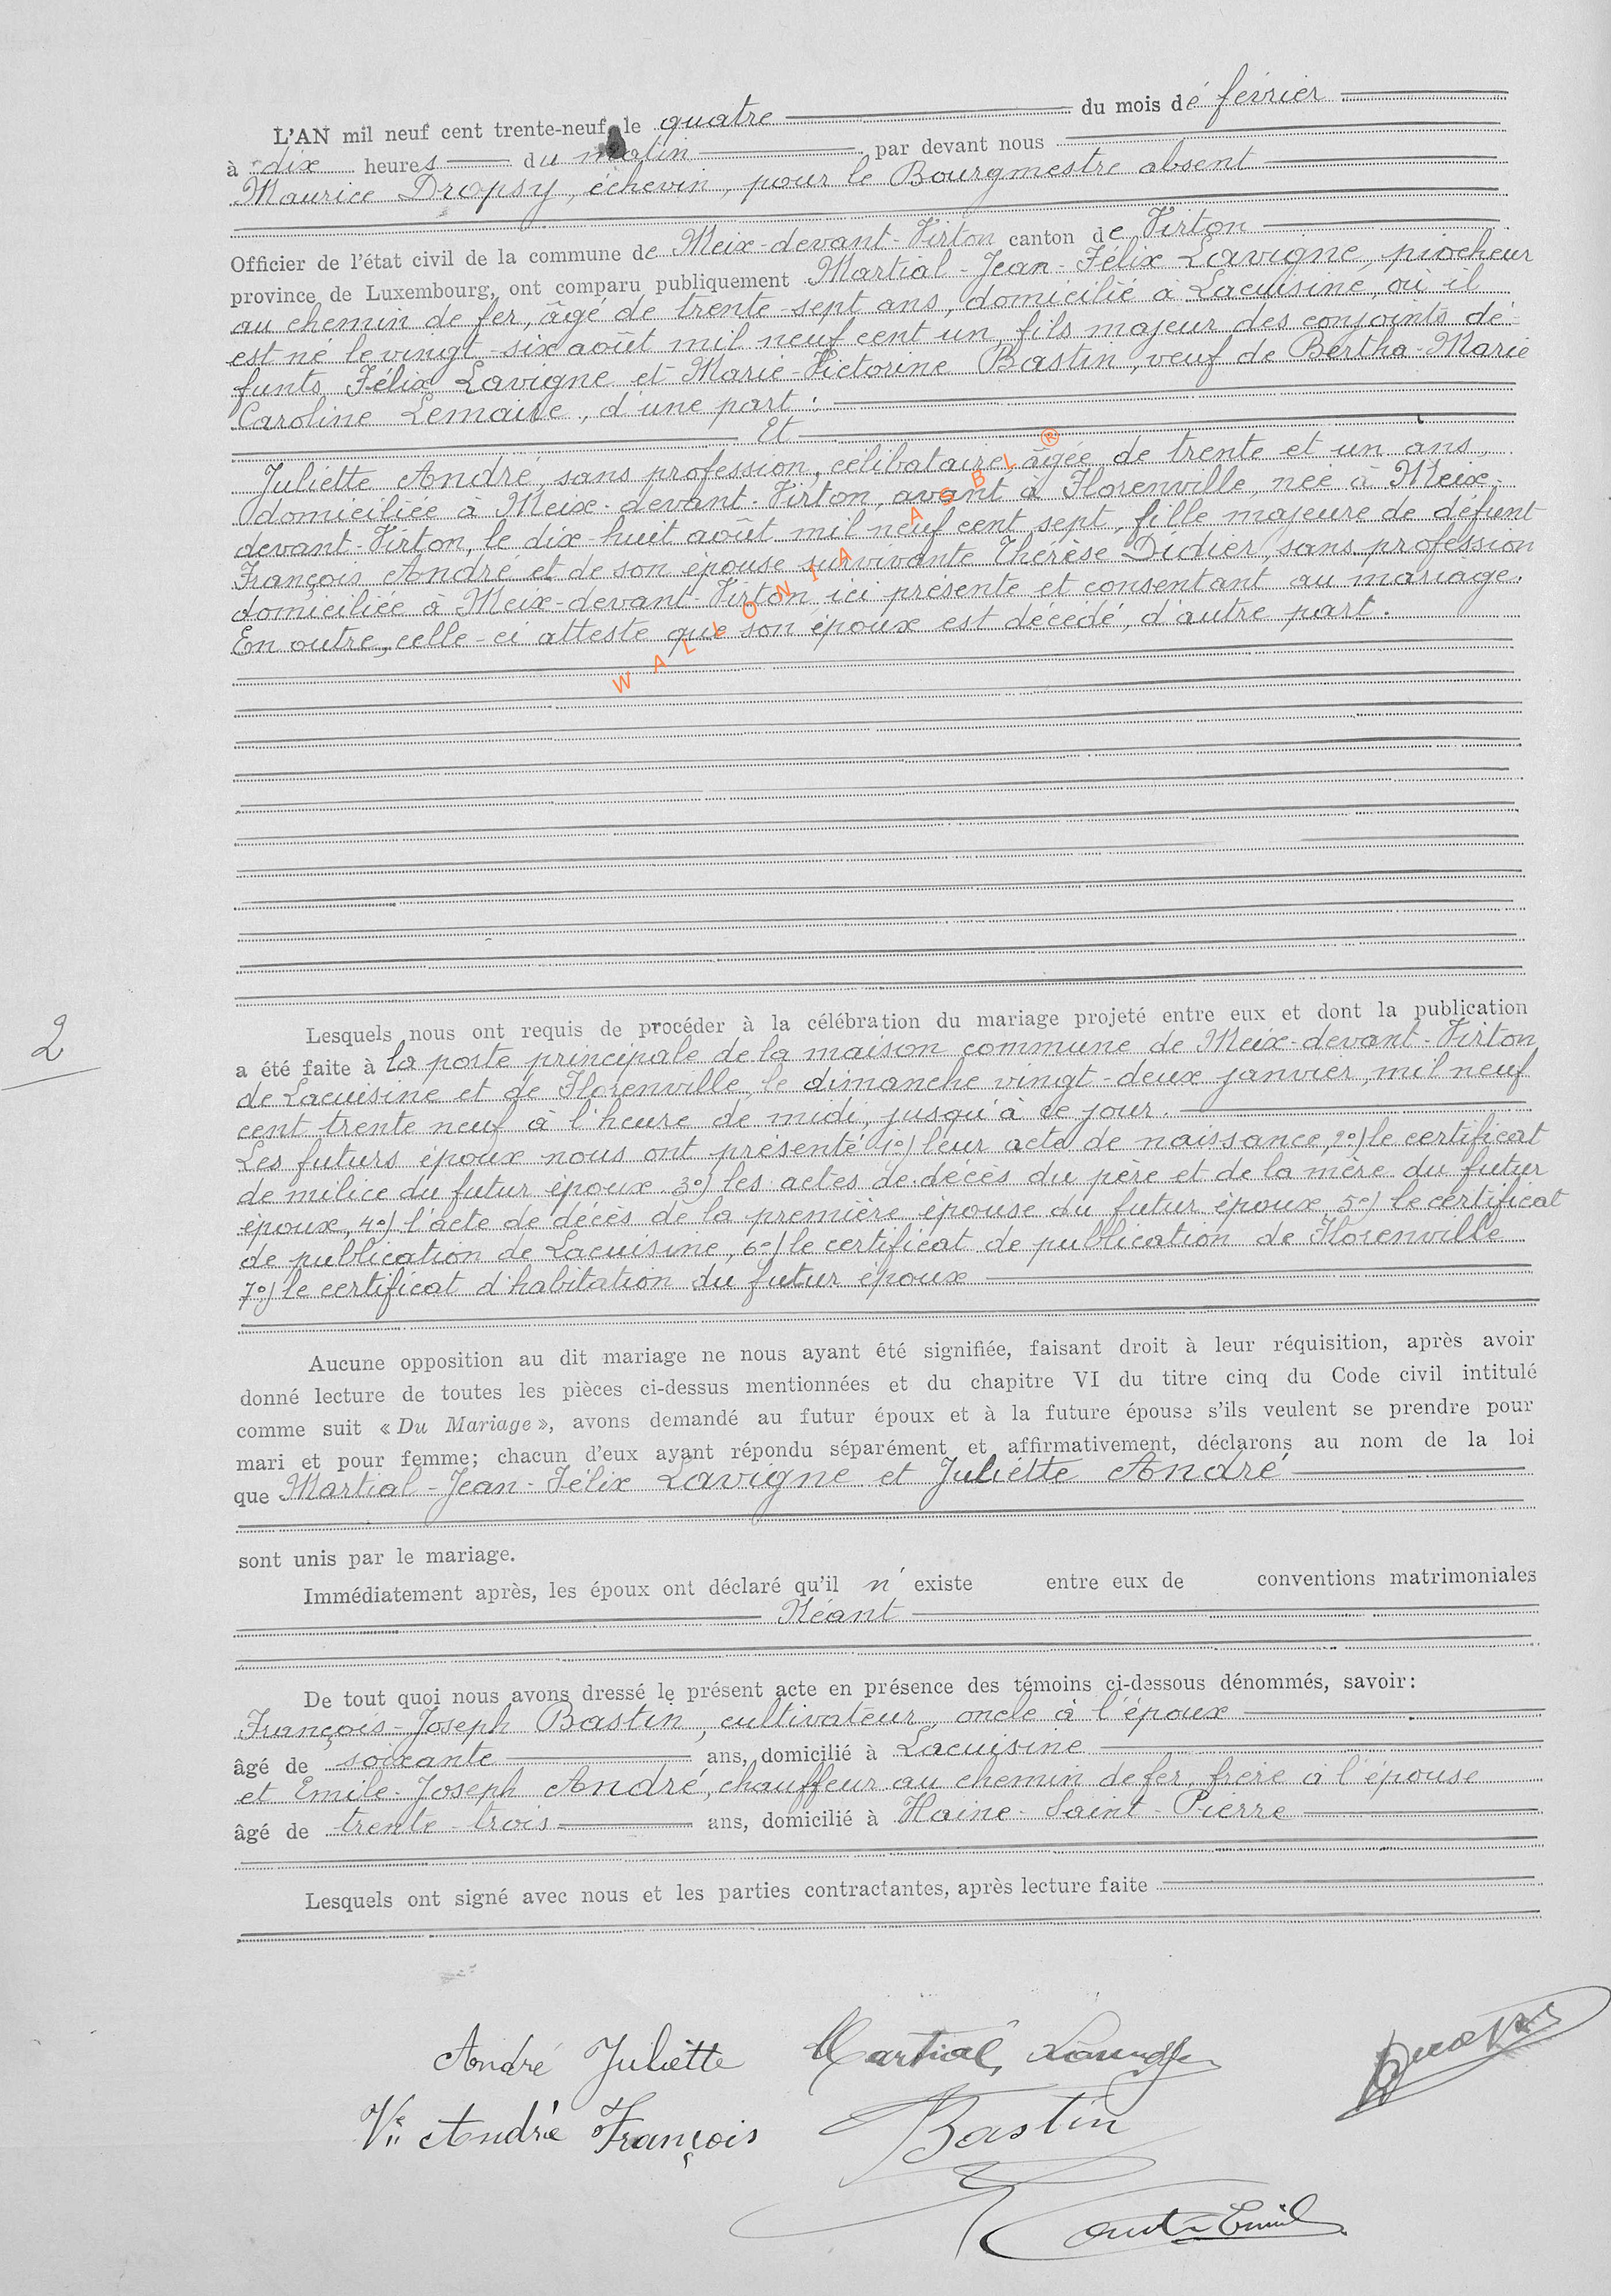 L'AN mil neuf cent trente-neuf, le quatre du mois de février
à dix heures du matin par devant nous
Maurice Dropsy, échevin, pour le Bourgmestre absent
Officier de l'état civil de la commune de Meix-devant-Virton canton de Virton
province de Luxembourg, ont comparu publiquement Martial-Jean-Félix Lavigne, piocheur
au chemin de fer, âgé de trente-sept ans, domicilié à Lacuisine, où il
est né le vingt-six août mil neuf cent un, fils majeur des conjoints dé-
funts Félix Lavigne et Marie-Victorine Bastin, veuf de Bertha-Marie
Caroline Lemaire, d'une part :
Et
Juliette André, sans profession, célibataire, âgée de trente et un ans,
domiciliée à Meix-devant-Virton, avant à Florenville, née à Meix-
devant-Virton, le dix-huit août mil neuf cent sept, fille majeure de défunt
François André et de son épouse survivante Thérèse Didier, sans profession
domiciliée à Meix-devant-Virton ici présente et consentant au mariage.
En outre, celle-ci atteste que son époux est décédé, d'autre part.
WALLONIA ASBL ®
Lesquels nous ont requis de procéder à la célébration du mariage projeté entre eux et dont la publication
2
a été faite à la porte principale de la maison commune de Meix-devant-Virton
de Lacuisine et de Florenville, le dimanche vingt-deux janvier, mil neuf
cent trente neuf à l'heure de midi, jusqu'à ce jour.
Les futurs époux nous ont présenté 1°) leur acte de naissance, 2°) le certificat
de milice du futur époux 3°) les actes de décès du père et de la mère du futur
époux, 4°) l'acte de décès de la première épouse du futur époux, 5°) le certificat
de publication de Lacuisine, 6°) le certificat de publication de Florenville
7°) le certificat d'habitation du futur époux
Aucune opposition au dit mariage ne nous ayant été signifiée, faisant droit à leur réquisition, après avoir
donné lecture de toutes les pièces ci-dessus mentionnées et du chapitre VI du titre cinq du Code civil intitulé
comme suit « Du Mariage », avons demandé au futur époux et à la future épouse s'ils veulent se prendre pour
mari et pour femme; chacun d'eux ayant répondu séparément et affirmativement, déclarons au nom de la loi
que Martial-Jean-Félix Lavigne et Juliette André
sont unis par le mariage.
Immédiatement après, les époux ont déclaré qu'il n'existe entre eux de conventions matrimoniales
Néant
De tout quoi nous avons dressé le présent acte en présence des témoins ci-dessous dénommés, savoir:
François-Joseph Bastin, cultivateur, oncle à l'époux
âgé de soixante ans, domicilié à Lacuisine
et Emile-Joseph André, chauffeur au chemin de fer, frère à l'épouse
âgé de trente-trois ans, domicilié à Haine-Saint-Pierre
Lesquels ont signé avec nous et les parties contractantes, après lecture faite
André Juliette Martial Lavigne
Ve André François Bastin
Emile